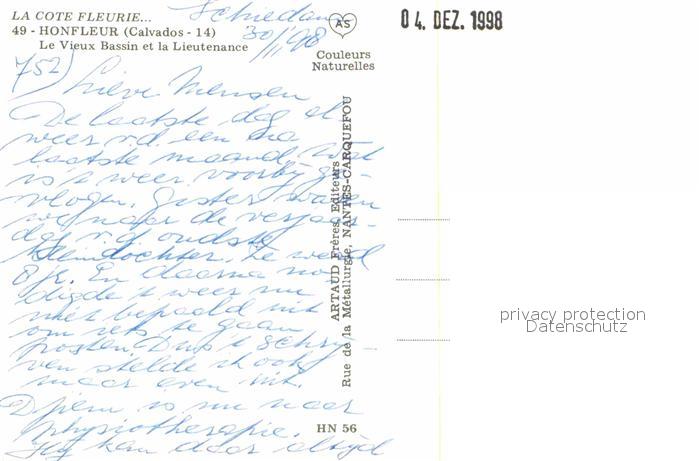 LA COTE FLEURIE...
49 - HONFLEUR (Calvados - 14)
Le Vieux Bassin et la Lieutenance
AS
Couleurs
Naturelles
04. DEZ. 1998
Schiedam
30/11 '98
752)
Lieve Mensen
De laatste dag al
weer v.d. een na
laatste maand, wat
is 't weer voorby ge-
vlogen. Gister waren
we naar de verjaar-
dag v.d. oudste
kleindochter. Ze werd
8 jr. En daarna no
digde 't weer nu
niet bepaald uit
om iets te gaan
posten. Dus 't schry
ven stelde ik ook
maar even uit.
is nu naar
physiotherapie.
kan daar altyd
ARTAUD Frères, Editeurs
Rue de la Métallurgie, NANTES-CARQUEFOU
HN 56
privacy protection
Datenschutz